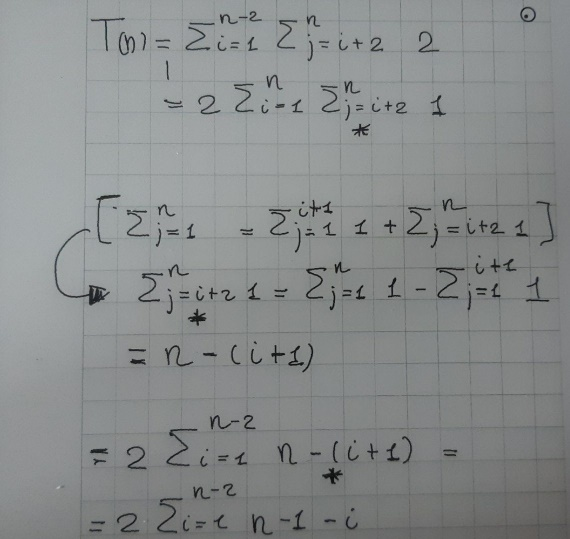 T(n) = Σ_{i=1}^{n-2} Σ_{j=i+2}^{n} 2
= 2 Σ_{i=1}^{n} Σ_{j=i+2}^{n} 1
*
[ Σ_{j=1}^{n} = Σ_{j=1}^{i+1} 1 + Σ_{j=i+2}^{n} 1 ]
Σ_{j=i+2}^{n} 1 = Σ_{j=1}^{n} 1 - Σ_{j=1}^{i+1} 1
*
= n - (i+1)
= 2 Σ_{i=1}^{n-2} n - (i+1) =
*
= 2 Σ_{i=1}^{n-2} n-1 -i